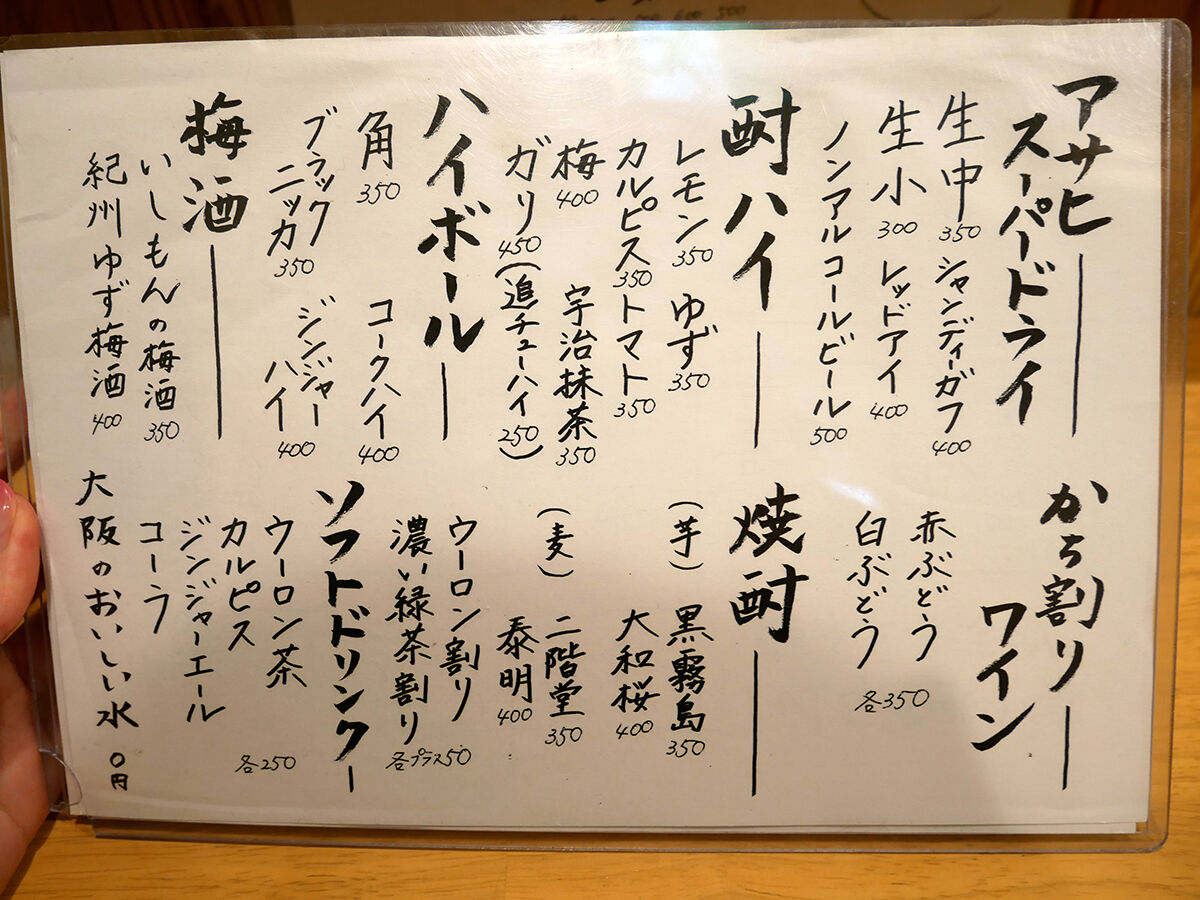 アサヒ
スーパードライ
生中 350
シャンディーガフ 400
生小 300
レッドアイ 400
ノンアルコールビール 500
酎ハイ
レモン 350
ゆず 350
カルピス 350
トマト 350
梅 400
宇治抹茶 350
ガリ 450
(追チューハイ 250)
ハイボール
角 350
コークハイ 400
ブラック
ニッカ 350
ジンジャー
ハイ 400
梅酒
いしもんの梅酒 350
紀州ゆず梅酒 400
かち割り
ワイン
赤ぶどう
白ぶどう
各350
焼酎
(芋) 黒霧島 350
大和桜 400
(麦) 二階堂 350
泰明 400
ウーロン割り
濃い緑茶割り
各プラス50
ソフトドリンク
ウーロン茶
カルピス
ジンジャーエール
コーラ
各250
大阪のおいしい水 0円